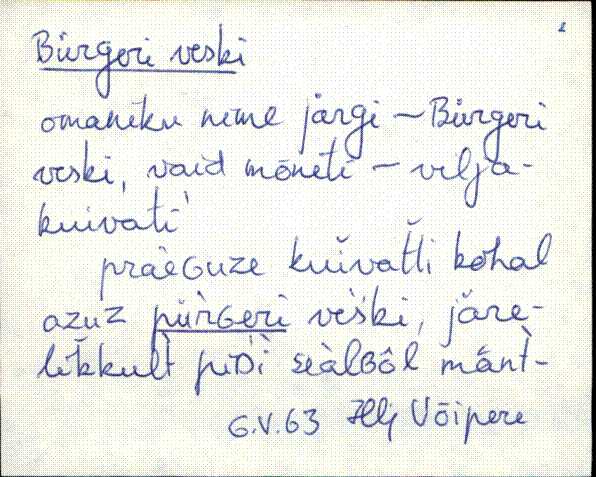 2
Bürgeri veski
omaniku nime järgi – Bürgeri
veski, vaid mõneti – vilja-
kuivati
präeGuze kuivatti kohal
azuz pürGeri veski, järe-
likkult pidi seàlBôl mänt-
6.V.63 Hlj Võipere